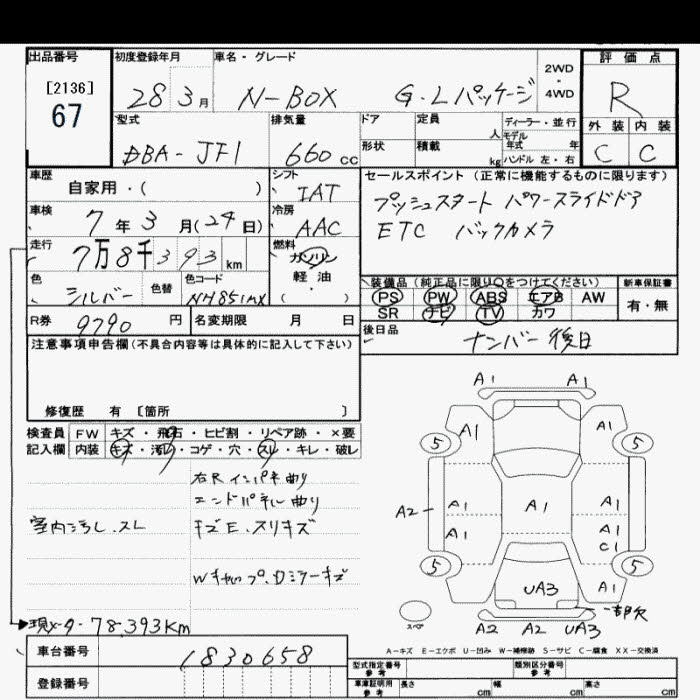 出品番号
[2136]
67
初度登録年月
28 3月
車名・グレード
N-BOX G・Lパッケージ
2WD
・
4WD
評価点
R
外装 内装
C C
型式
DBA-JF1
排気量
660 cc
ドア
形状
定員
人
積載
kg
ディーラー・並行
モデル
年式 年
ハンドル 左・右
車歴
自家用・( )
車検
7年3月(24日)
走行
7万8千393km
色
シルバー
色替
色コード
NH851MX
シフト
IAT
冷房
AAC
燃料
ガソリン
軽・油
( )
セールスポイント (正常に機能するものに限ります)
プッシュスタート パワースライドドア
ETC バックカメラ
装備品 (純正品に限り○をつけてください)
PS PW ABS エアB AW
SR ナビ TV カワ
新車保証書
有・無
R券 9790 円
名変期限 月 日
後日品
ナンバー後日
注意事項申告欄(不具合内容等は具体的に記入して下さい)
修復歴 有 [箇所 ]
検査員
記入欄
FW キズ・飛石・ヒビ割・リペア跡・×要
内装 キズ・汚れ・コゲ・穴・スレ・キレ・破レ
右Rインパネ曲り
エンドパネル曲り
室内汚し、スレ
キズE、スリキズ
Wキャップ、Dミラーキズ
現メータ・78,393Km
車台番号
1830658
登録番号
A1 A1
A1 A1
5 5
A2 A1 A1 A1
A1 A1
C1
5 5
UA3 A1
一部欠
スペア
A2 A2 UA3
A-キズ E-エクボ U-凹み W-補修跡 S-サビ C-腐食 XX-交換済
型式指定番号
参考
類別区分番号
参考
車庫証明用
参考
長さ cm
幅 cm
高さ cm